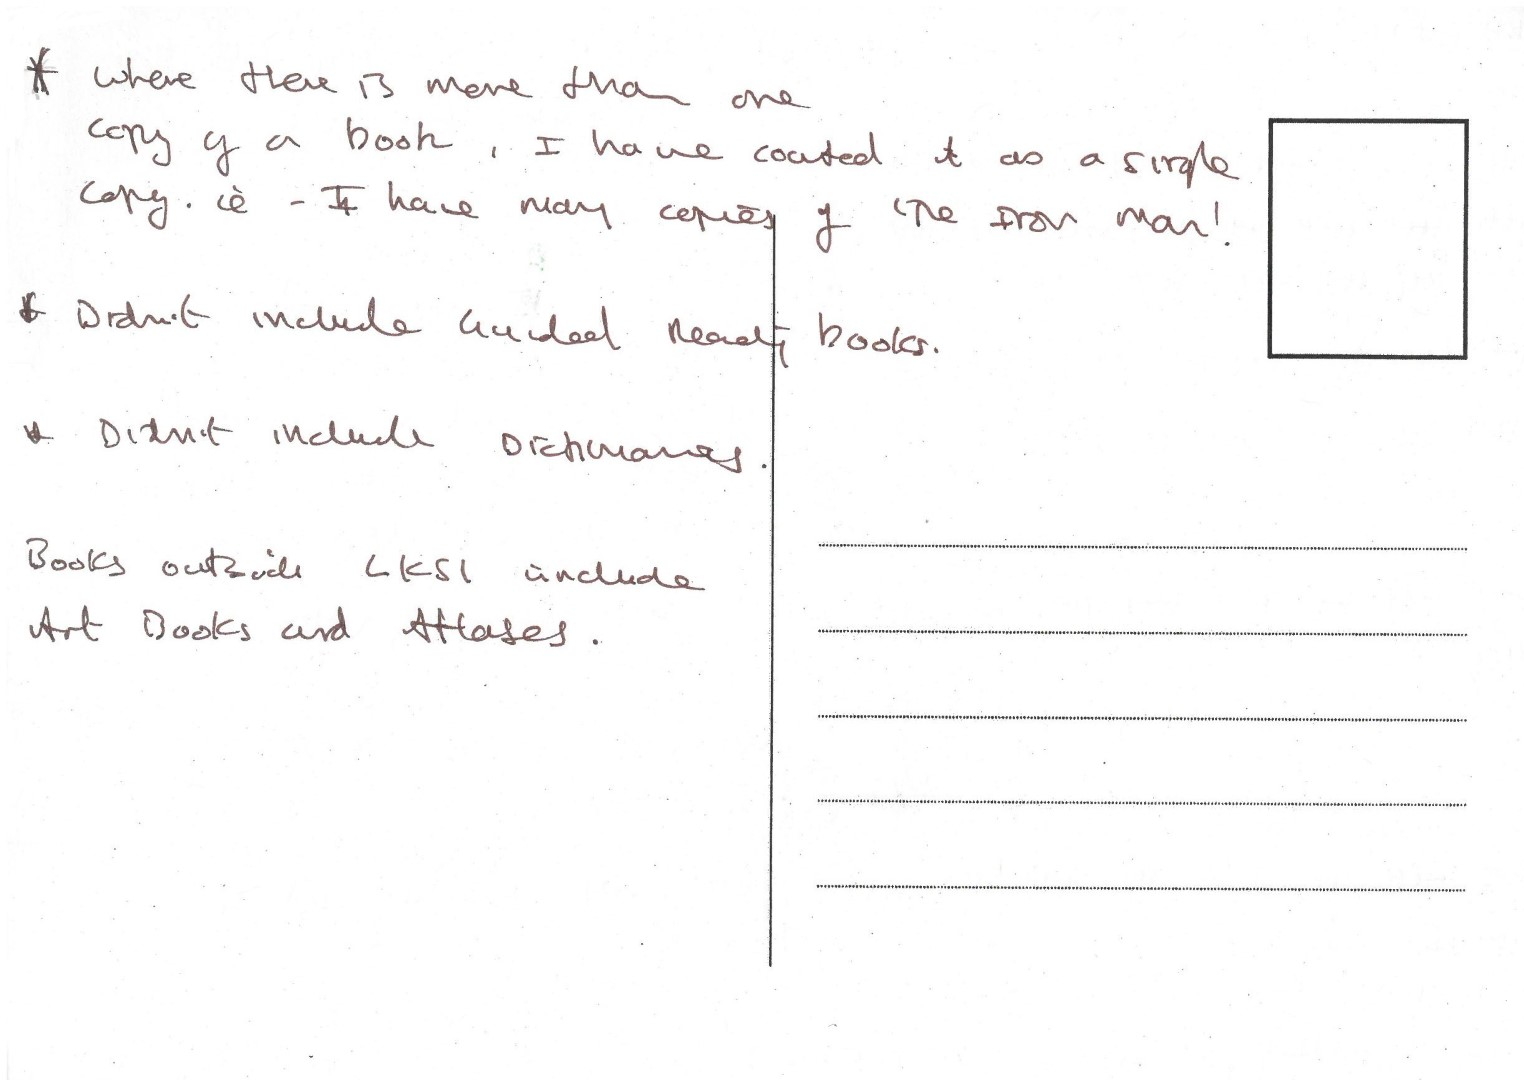 * Where there is more than one
copy of a book, I have counted it as a single
copy. ie - I have many copies of 'The Iron Man'.
* Didn't include Guided Reading books.
* Didn't include Dictionaries.
Books outside LKS1 include
Art Books and Atlases.